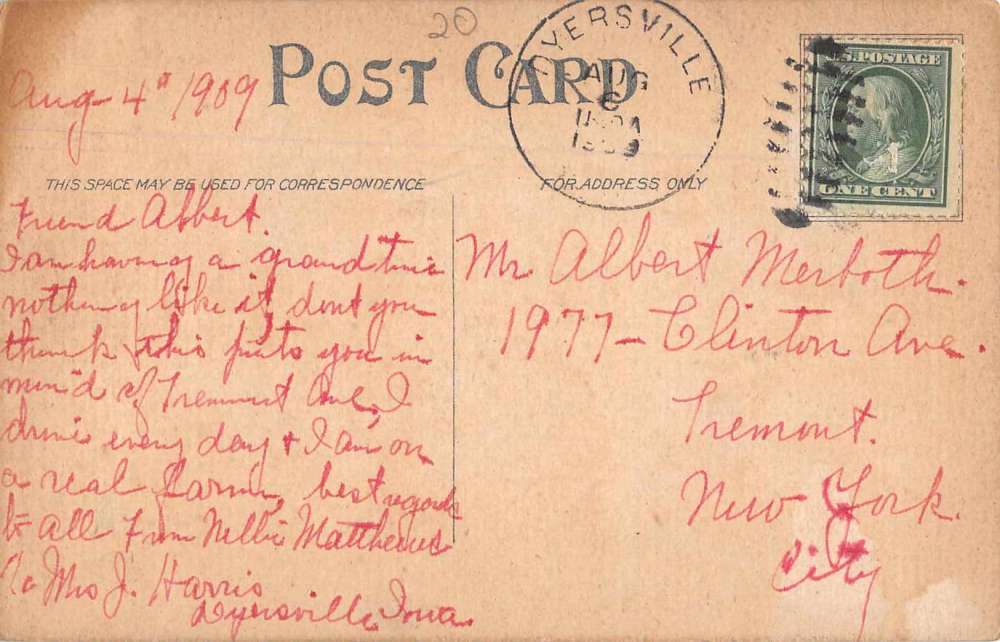 20
POST CARD
Aug - 4" 1909
DYERSVILLE
AUG
6
1909
U.S. POSTAGE
ONE CENT
THIS SPACE MAY BE USED FOR CORRESPONDENCE
FOR ADDRESS ONLY
Friend Albert.
I am having a grand time
nothing like it, dont you
think this puts you in
mind of Tremont Ave, I
drive every day & I am on
a real farm, best regards
to all From Nellie Matthews
c/o Mrs J. Harris
Dyersville, Iowa.
Mr Albert Merboth.
1977 - Clinton Ave.
Tremont.
New York.
City